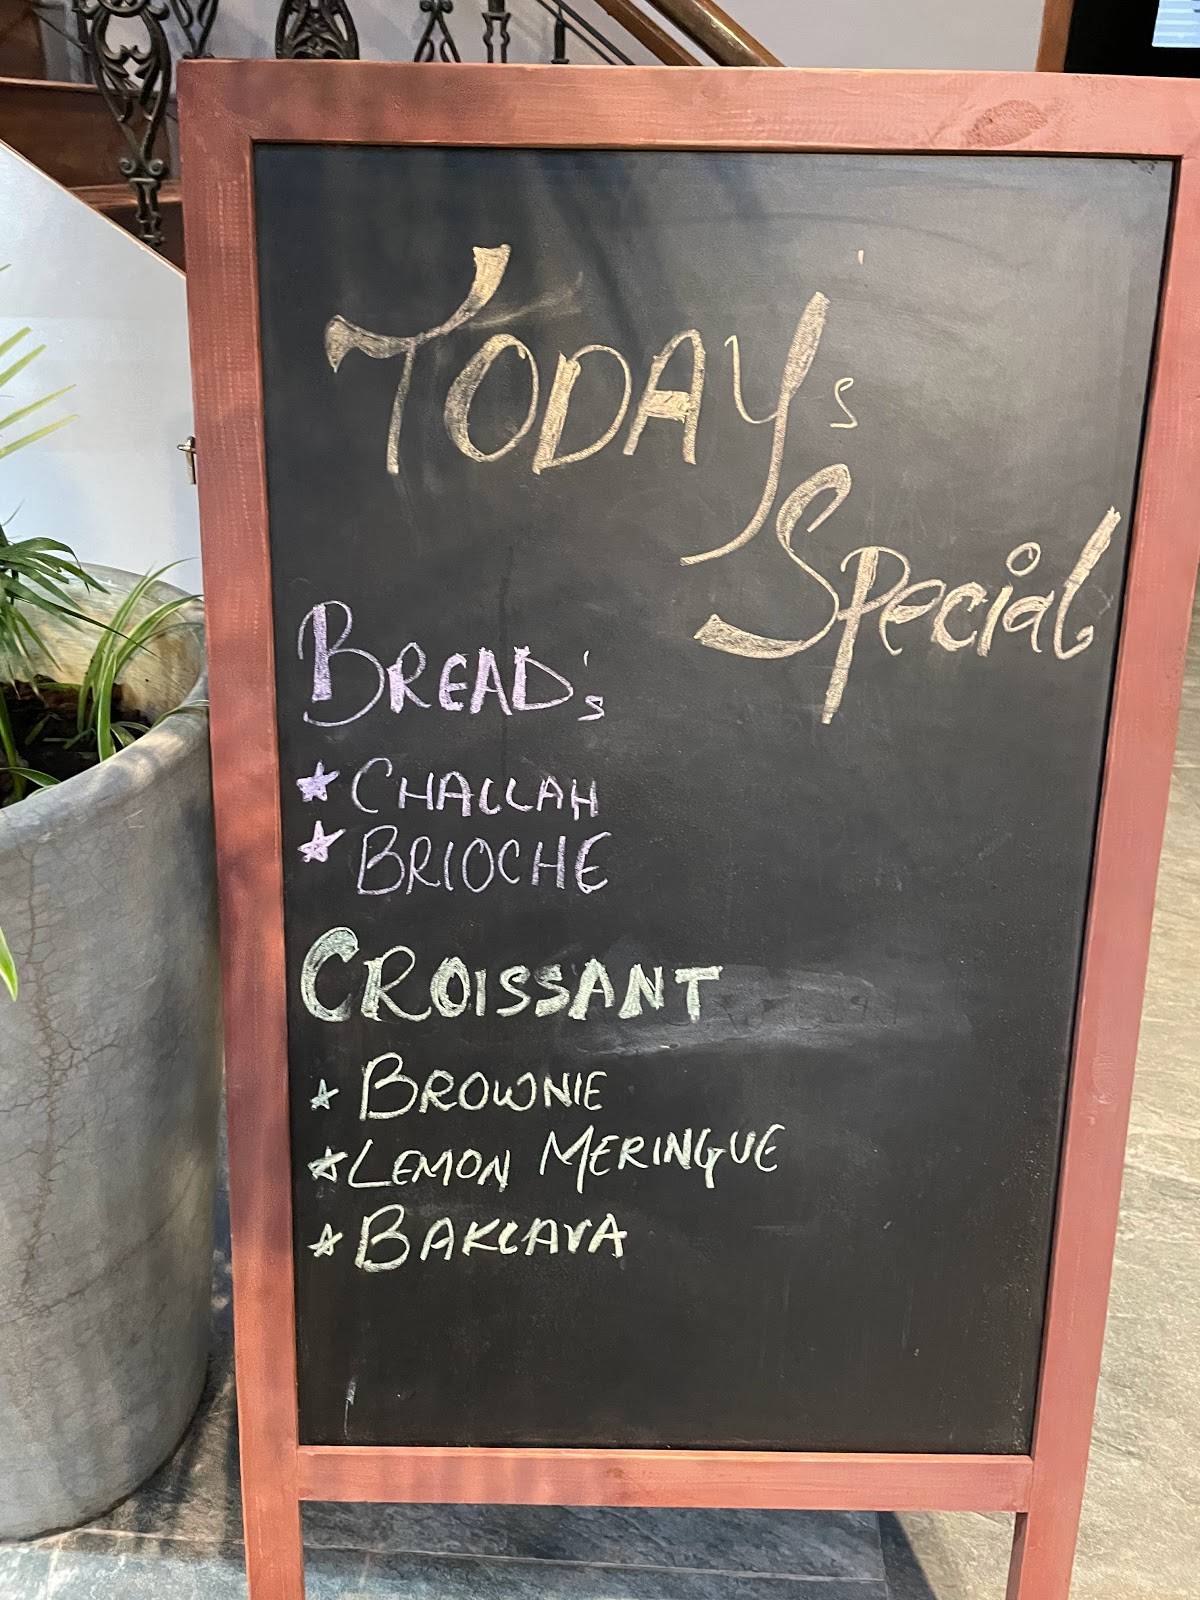 TODAY's
Special
BREAD's
★ CHALLAH
★ BRIOCHE
CROISSANT
★ BROWNIE
★ LEMON MERINGUE
★ BAKLAVA